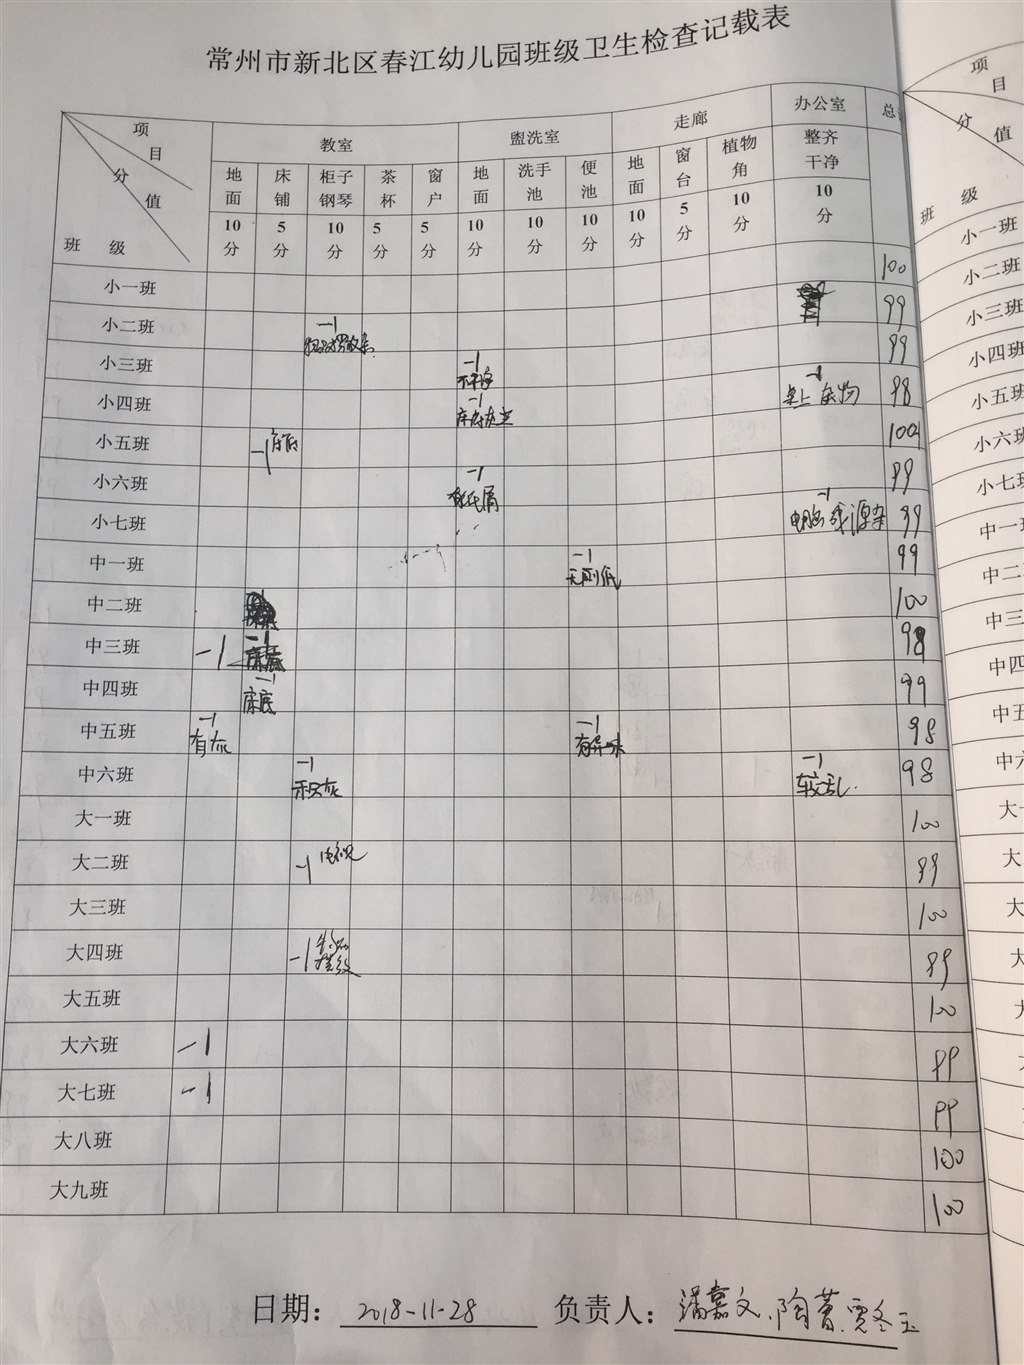 常州市新北区春江幼儿园班级卫生检查记载表
项目 分值 班级 教室 盥洗室 走廊 办公室 总
地面 床铺 柜子钢琴 茶杯 窗户 地面 洗手池 便池 地面 窗台 植物角 整齐干净
10分 5分 10分 5分 5分 10分 10分 10分 10分 5分 10分 10分
小一班 100
小二班 -1 99
小三班 -1 不干净 99
小四班 -1 -1 桌上杂物 98
小五班 -1 100
小六班 -1 有纸屑 99
小七班 -1 99
中一班 -1 99
中二班 100
中三班 -1 -1 98
中四班 -1 床底 99
中五班 -1 有灰 -1 有异味 98
中六班 -1 积灰 -1 较乱. 98
大一班 100
大二班 -1 电视 99
大三班 100
大四班 -1 99
大五班 100
大六班 -1 99
大七班 -1 99
大八班 100
大九班 100
日期: 2018-11-28 负责人:
项目
分值
班级
小一班
小二班
小三班
小四班
小五班
小六班
小七班
中一班
中二
中三
中四
中五
中六
大一
大
大
大
大